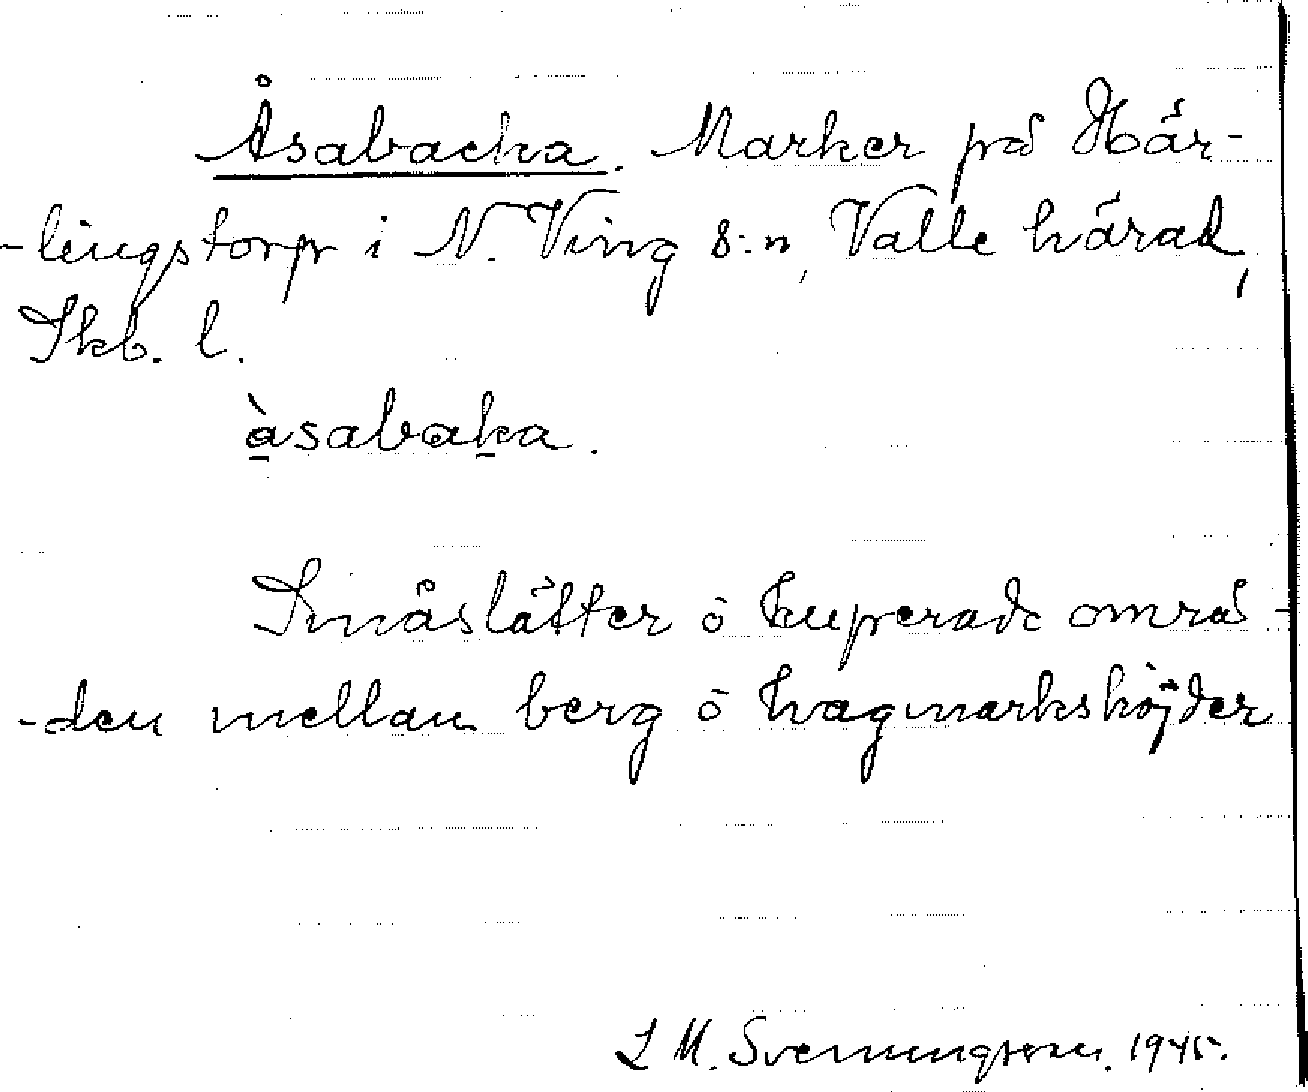 Åsabacka. Marker på Här-
-lingstorp i N. Ving s:n, Valle härad,
Skb. l.
àsabaka.
Småslätter o kuperade områ-
-den mellan berg o hagmarkshöjder
L M. Svenungsson. 1945.